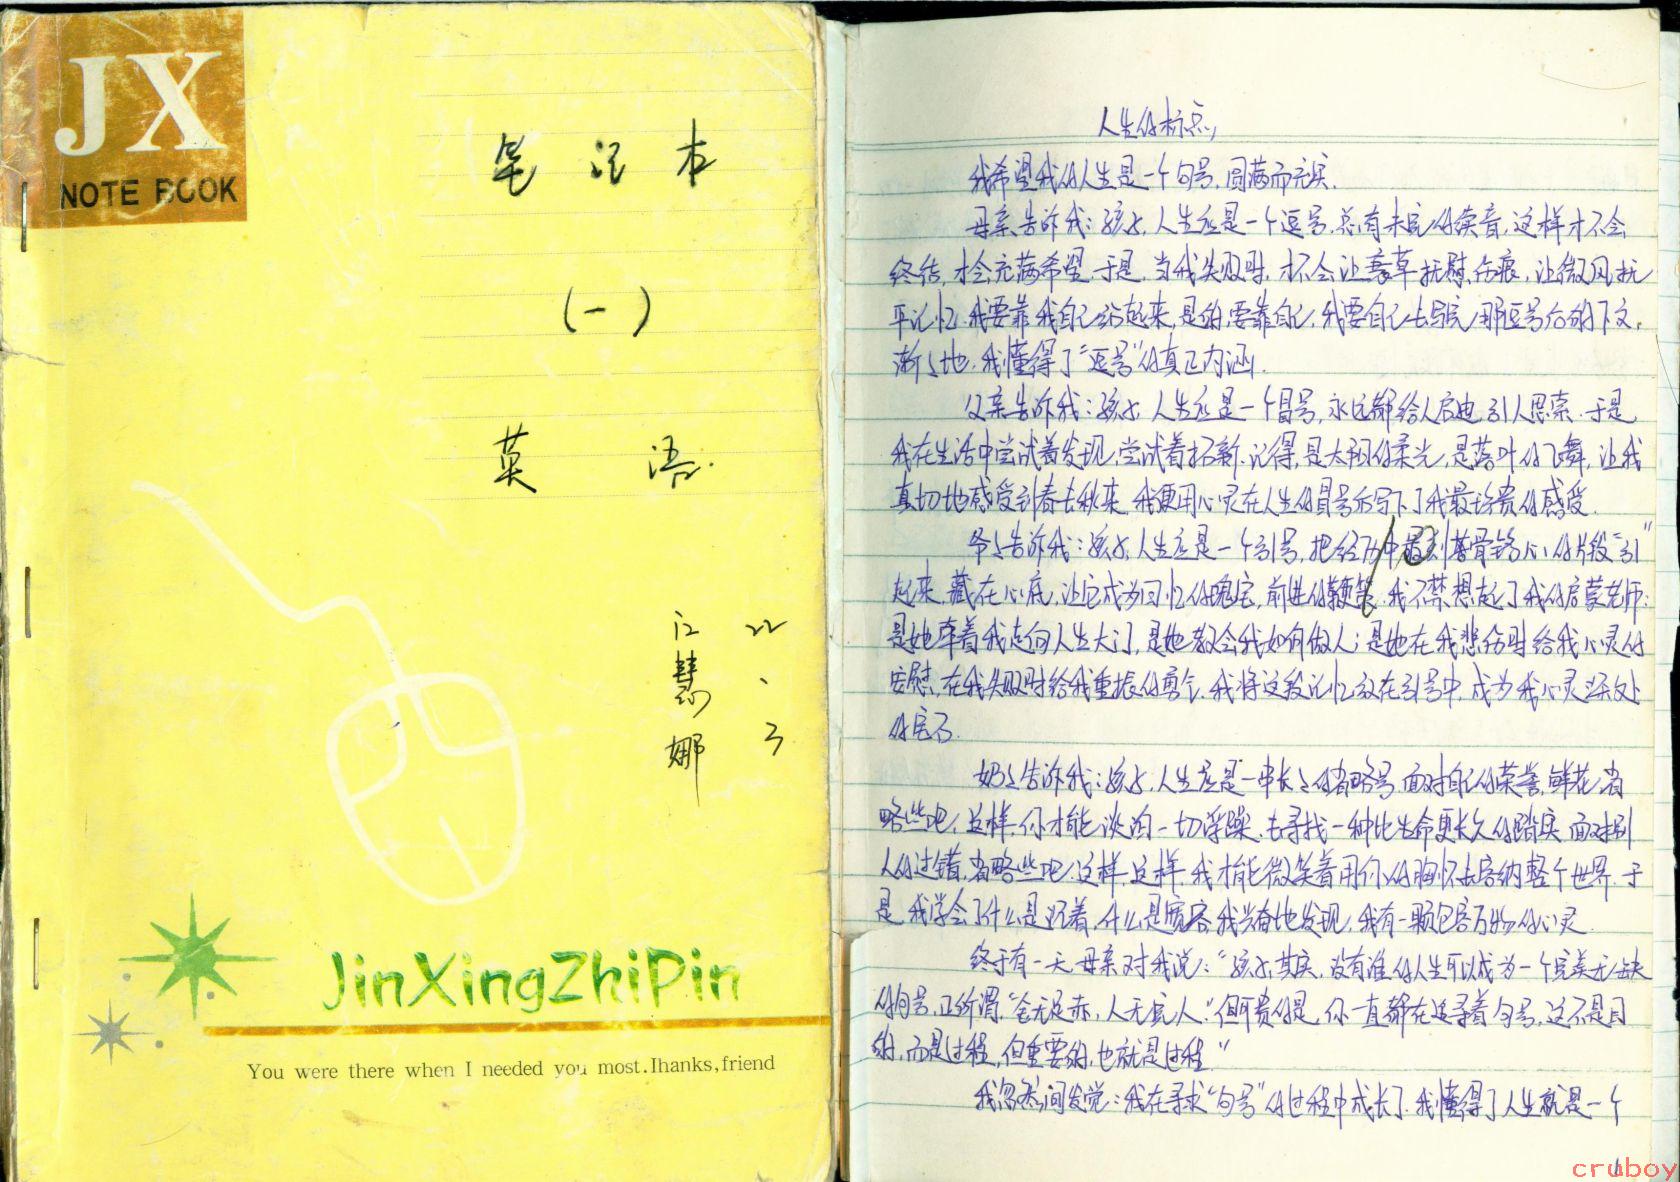 JX
NOTE BOOK
笔记本
(一)
英 语.
江慧娜
22、3
JinXingZhiPin
You were there when I needed you most.Ihanks,friend
人生的标点
我希望我的人生是一个句号,圆满而充实.
母亲告诉我:孩子,人生应是一个逗号,总有未完的续音,这样才不会
终结,才会充满希望.于是,当我失败时,才不会让 草抚慰伤痕,让微风抚
平记忆.我要靠我自己站起来,是的,要靠自己,我要自己去写完那逗号后的下文,
渐渐地,我懂得了“逗号”的真正内涵.
父亲告诉我:孩子,人生应是一个冒号,永远都给人启迪,引人思索.于是
我在生活中尝试着发现,尝试着拓新.记得,是太阳的柔光,是落叶的飞舞,让我
真切地感受到春去秋来.我便用心灵在人生的冒号后写下了我最珍贵的感受.
爷爷告诉我:孩子,人生应是一个引号,把经历中最刻骨铭心的片段“引”
起来,藏在心底,让它成为回忆的瑰宝,前进的鞭策.我不禁想起了我的启蒙老师:
是她牵着我走向人生大门,是她教会我如何做人;是她在我悲伤时给我心灵的
安慰,在我失败时给我重振的勇气.我将这段记忆放在引号中,成为我心灵深处
的宝石.
奶奶告诉我:孩子,人生应是一串长长的省略号,面对自己的荣誉,鲜花,省
略些吧,这样,你才能淡泊一切浮躁.去寻找一种比生命更长久的踏实.面对别
人的过错,省略些吧.这样,这样,我才能微笑着用你的胸怀去容纳整个世界.于
是,我学会了什么是沉着,什么是宽容.我兴奋地发现,我有一颗包容万物的心灵.
终于有一天,母亲对我说:“孩子,其实,没有谁的人生可以成为一个完美无缺
的句号,正所谓,“金无足赤,人无完人”.但可贵的是,你一直都在追寻着句号,这不是目
的,而是过程,但重要的,也就是过程”
我忽然间发觉:我在寻求“句号”的过程中成长了.我懂得了人生就是一个
1
cruboy